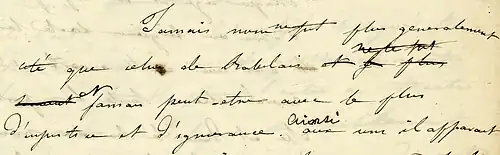 Jamais nom ne fut plus generalement
ne le fut
cité que celui de Rabelais et plus
et jamais peut-etre avec le plus
d'injustice et d'ignorance. Ainsi aux uns il apparait